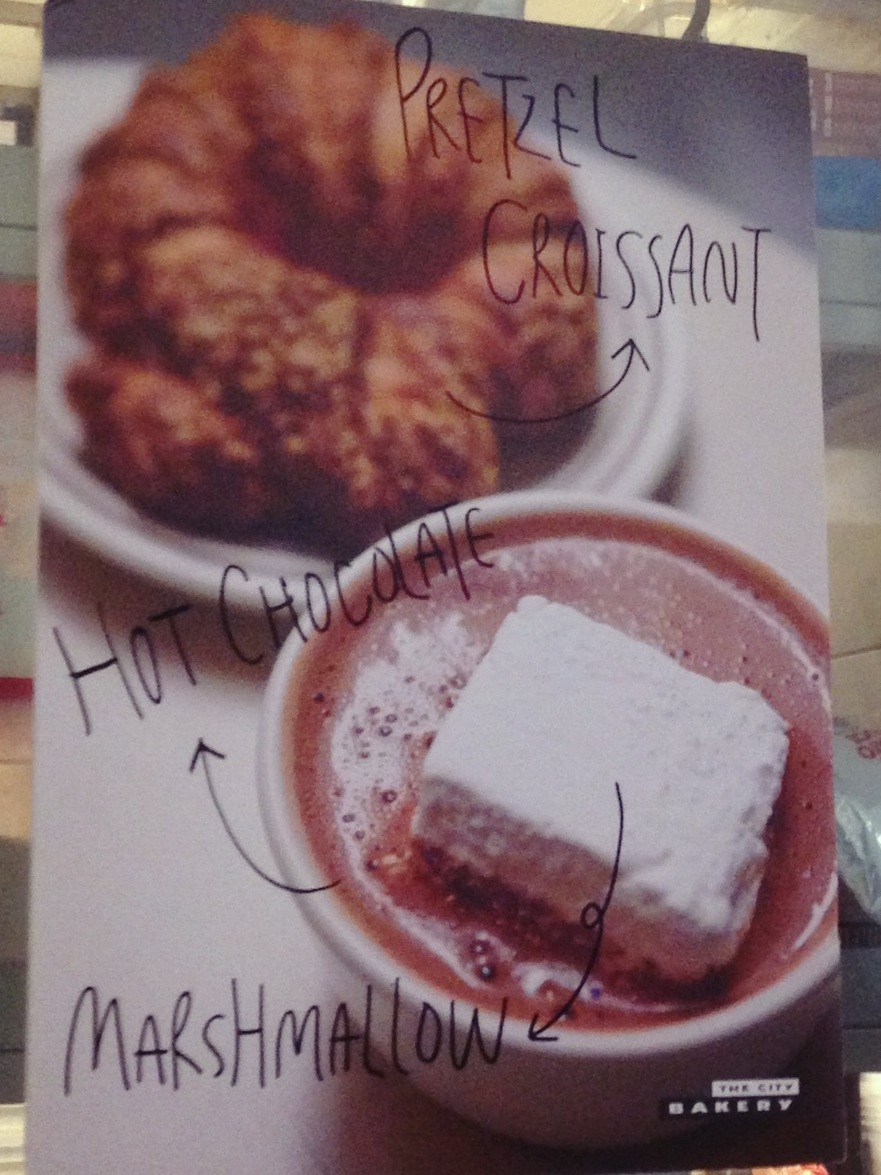 PRETZEL
CROISSANT
HOT CHOCOLATE
MARSHMALLOW
THE CITY
BAKERY